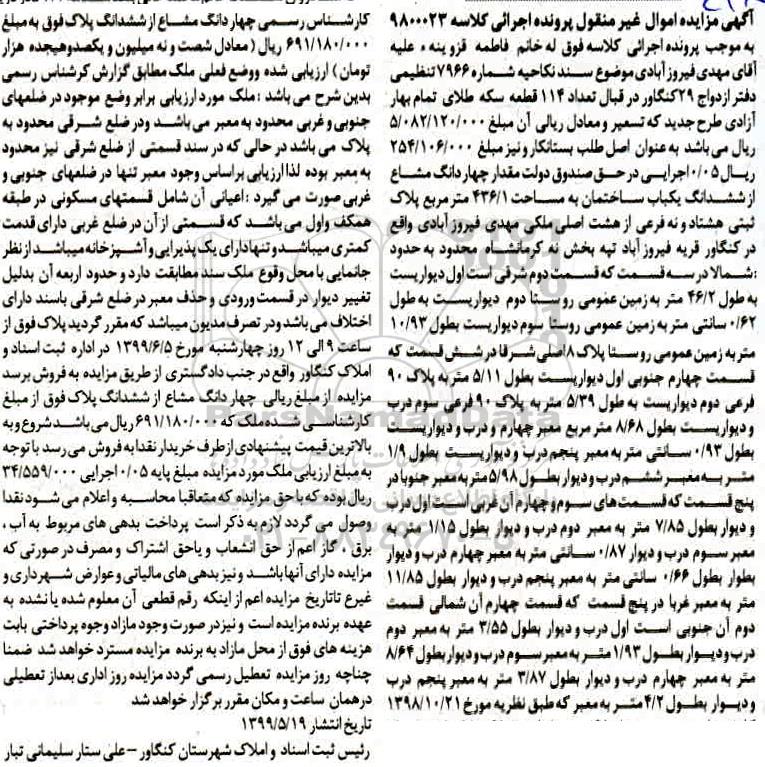 آگهی مزایده اموال غیر منقول پرونده اجرائی کلاسه ۹۸۰۰۰۲۳
به موجب پرونده اجرائی کلاسه فوق له خانم فاطمه قزوینه ، علیه
آقای مهدی فیروزآبادی موضوع سند نکاحیه شماره ۷۹۶۶ تنظیمی
دفتر ازدواج ۲۹ کنگاور در قبال تعداد ۱۱۴ قطعه سکه طلای تمام بهار
آزادی طرح جدید که تسعیر و معادل ریالی آن مبلغ ۵/۰۸۲/۱۲۰/۰۰۰
ریال می باشد به عنوان اصل طلب بستانکار و نیز مبلغ ۲۵۴/۱۰۶/۰۰۰
ریال ۰/۰۵ اجرایی در حق صندوق دولت مقدار چهار دانگ مشاع
از ششدانگ یکباب ساختمان به مساحت ۴۳۶/۱ متر مربع پلاک
ثبتی هشتاد و نه فرعی از هشت اصلی ملکی مهدی فیروزآبادی واقع
در کنگاور قریه فیروزآباد تپه بخش نه کرمانشاه محدود به حدود
:شمالا در سه قسمت که قسمت دوم شرقی است اول دیواریست
به طول ۴۶/۲ متر به زمین عمومی روستا دوم دیواریست به طول
۰/۶۲ سانتی متر به زمین عمومی روستا سوم دیواریست بطول ۱۰/۹۳
متر به زمین عمومی روستا پلاک ۸ اصلی شرقا در شش قسمت که
قسمت چهارم جنوبی اول دیواریست بطول ۵/۱۱ متر به پلاک ۹۰
فرعی دوم دیواریست به طول ۵/۳۹ متر به پلاک ۹۰ فرعی سوم درب
و دیواریست بطول ۸/۶۸ متر مربع معبر چهارم و درب و دیواریست
بطول ۰/۹۳ سانتی متر به معبر پنجم درب و دیواریست بطول ۱/۹
متر به معبر ششم درب و دیوار بطول ۵/۹۸ متر به معبر جنوبا در
پنج قسمت که قسمت های سوم و چهارم آن غربی است اول درب
و دیوار بطول ۷/۸۵ متر به معبر دوم درب و دیوار بطول ۱/۱۵ متر به
معبر سوم درب و دیوار ۰/۸۷ سانتی متر به معبر چهارم درب و دیوار
بطوار بطول ۰/۶۶ سانتی متر به معبر پنجم درب و دیوار ۱۱/۸۵
متر به معبر غربا در پنج قسمت که قسمت چهارم آن شمالی قسمت
دوم آن جنوبی است اول درب و دیوار بطول ۳/۵۵ متر به معبر دوم
درب و دیوار بطول ۱/۹۳ متر به معبر سوم درب و دیوار بطول ۸/۶۴
متر به معبر چهارم درب و دیوار بطول ۳/۸۷ متر به معبر پنجم درب
و دیوار بطول ۴/۲ متر به معبر که طبق نظریه مورخ ۱۳۹۸/۱۰/۲۱
کارشناس رسمی چهار دانگ مشاع از ششدانگ پلاک فوق به مبلغ
۶۹۱/۱۸۰/۰۰۰ ریال ( معادل شصت و نه میلیون و یکصدو هیجده هزار
تومان ) ارزیابی شده ووضع فعلی ملک مطابق گزارش کرشناس رسمی
بدین شرح می باشد : ملک مورد ارزیابی برابر وضع موجود در ضلعهای
جنوبی و غربی محدود به معبر می باشد ودر ضلع شرقی محدود به
پلاک می باشد در حالی که در سند قسمتی از ضلع شرقی نیز محدود
به معبر بوده لذا ارزیابی براساس وجود معبر تنها در ضلعهای جنوبی و
غربی صورت می گیرد : اعیانی آن شامل قسمتهای مسکونی در طبقه
همکف واول می باشد که قسمتی از آن در ضلع غربی دارای قدمت
کمتری میباشد و تنها دارای یک پذیرایی و آشپزخانه میباشد از نظر
جانمایی با محل وقوع ملک سند مطابقت دارد و حدود اربعه آن بدلیل
تغییر دیوار در قسمت ورودی و حذف معبر در ضلع شرقی باسند دارای
اختلاف می باشد ودر تصرف مدیون میباشد که مقرر گردید پلاک فوق از
ساعت ۹ الی ۱۲ روز چهارشنبه مورخ ۱۳۹۹/۶/۵ در اداره ثبت اسناد و
املاک کنگاور واقع در جنب دادگستری از طریق مزایده به فروش برسد
مزایده از مبلغ ریالی چهار دانگ مشاع از ششدانگ پلاک فوق از مبلغ
کارشناسی شده ملک که ۶۹۱/۱۸۰/۰۰۰ ریال می باشد شروع و به
بالاترین قیمت پیشنهادی از طرف خریدار نقدا به فروش می رسد با توجه
به مبلغ ارزیابی ملک مورد مزایده مبلغ پایه ۰/۰۵ اجرایی ۳۴/۵۵۹/۰۰۰
ریال بوده که با حق مزایده که متعاقبا محاسبه و اعلام می شود نقدا
وصول می گردد لازم به ذکر است پرداخت بدهی های مربوط به آب ،
برق ، گاز اعم از حق انشعاب و یا حق اشتراک و مصرف در صورتی که
مزایده دارای آنها باشد و نیز بدهی های مالیاتی و عوارض شهرداری و
غیرع تا تاریخ مزایده اعم از اینکه رقم قطعی آن معلوم شده یا نشده به
عهده برنده مزایده است و نیز در صورت وجود مازاد وجوه پرداختی بابت
هزینه های فوق از محل مازاد به برنده مزایده مسترد خواهد شد ضمنا
چناچه روز مزایده تعطیل رسمی گردد مزایده روز اداری بعد از تعطیلی
در همان ساعت و مکان مقرر برگزار خواهد شد
تاریخ انتشار ۱۳۹۹/۵/۱۹
رئیس ثبت اسناد و املاک شهرستان کنگاور – علی ستار سلیمانی تبار
ParsNamadData